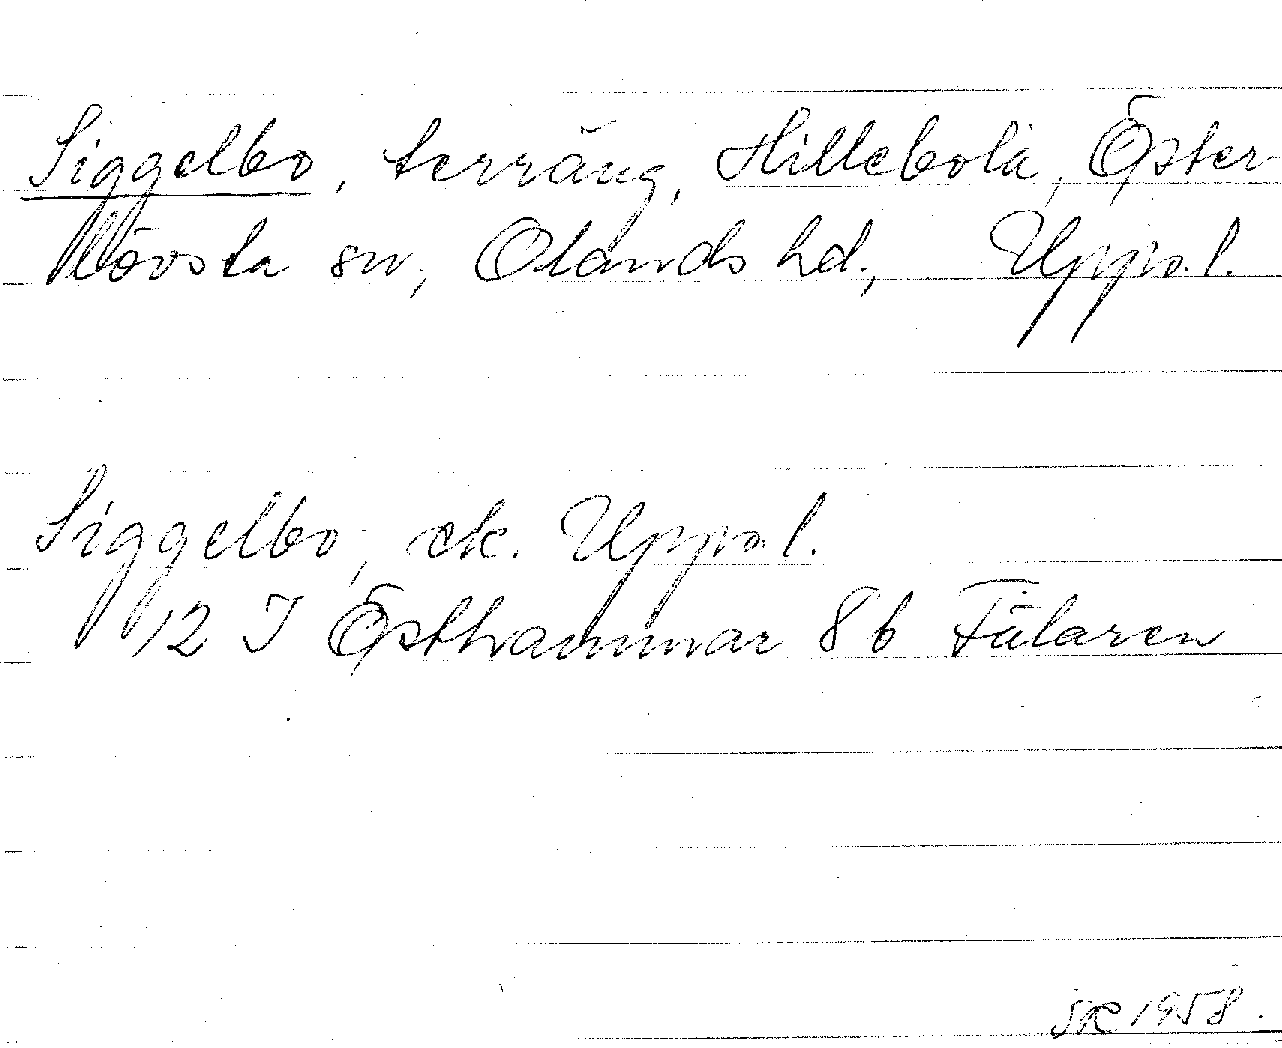 Siggelbo, terräng, Hillebola, Öster-
lövsta sn, Olands hd., Uppsl.
Siggelbo, ek. Uppsl.
12 I Östhammar 8b Fälaren
SR 1958.